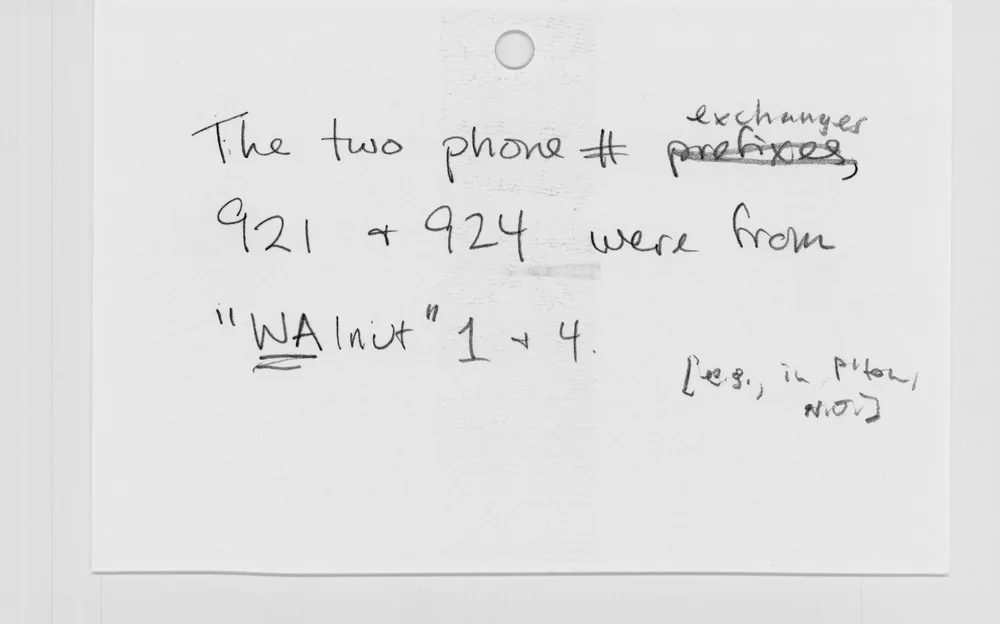 exchanges
The two phone # prefixes,
921 + 924 were from
"WAlnut" 1 + 4.
[e.g., in P'ton,
N.J.]